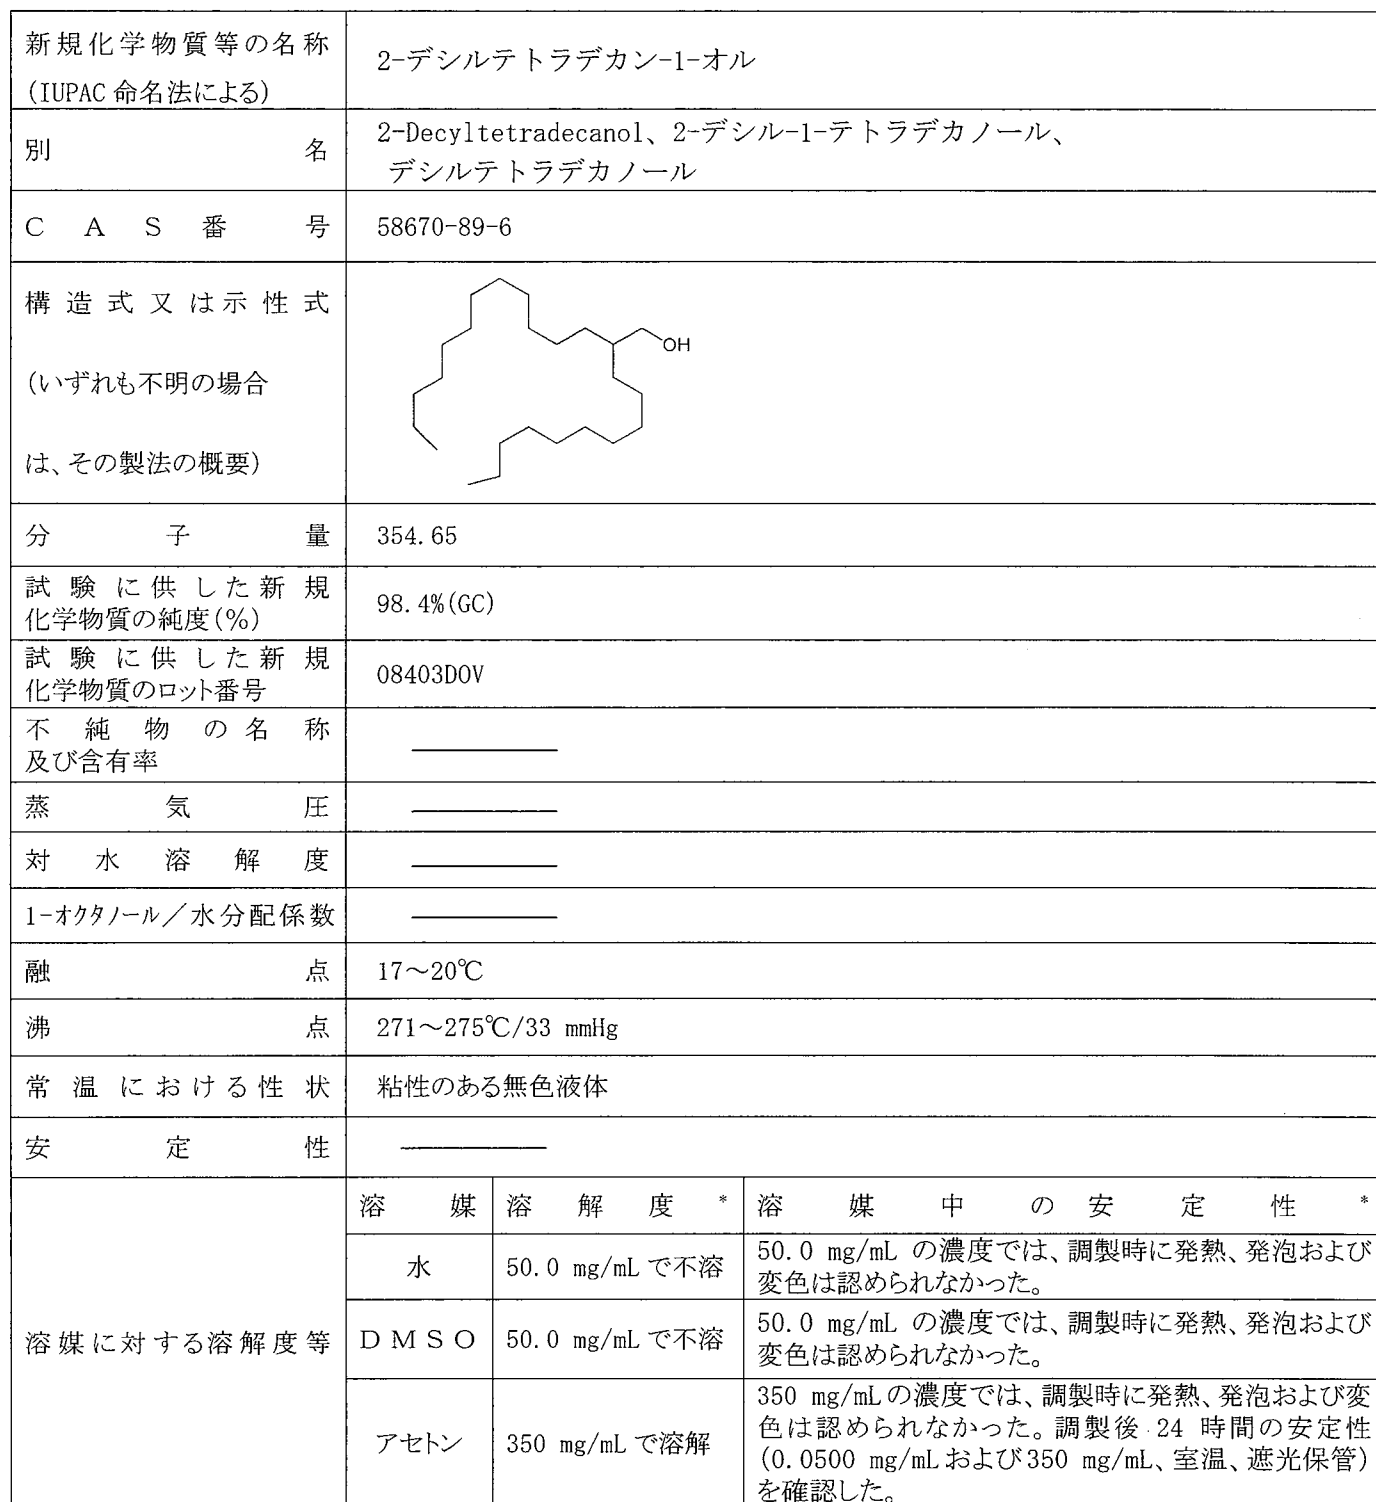 新規化学物質等の名称
(IUPAC 命名法による)
2-デシルテトラデカン-1-オル
別名
2-Decyltetradecanol、2-デシル-1-テトラデカノール、
デシルテトラデカノール
CAS番号
58670-89-6
構造式又は示性式
(いずれも不明の場合
は、その製法の概要)
OH
分子量
354.65
試験に供した新規
化学物質の純度(%)
98.4%(GC)
試験に供した新規
化学物質のロット番号
08403DOV
不純物の名称
及び含有率
蒸気圧
対水溶解度
1-オクタノール/水分配係数
融点
17~20℃
沸点
271~275℃/33 mmHg
常温における性状
粘性のある無色液体
安定性
溶媒に対する溶解度等
溶媒
溶解度*
溶媒中の安定性*
水
50.0 mg/mL で不溶
50.0 mg/mL の濃度では、調製時に発熱、発泡および
変色は認められなかった。
DMSO
50.0 mg/mL で不溶
50.0 mg/mL の濃度では、調製時に発熱、発泡および
変色は認められなかった。
アセトン
350 mg/mL で溶解
350 mg/mLの濃度では、調製時に発熱、発泡および変
色は認められなかった。調製後 24 時間の安定性
(0.0500 mg/mLおよび350 mg/mL、室温、遮光保管)
を確認した。